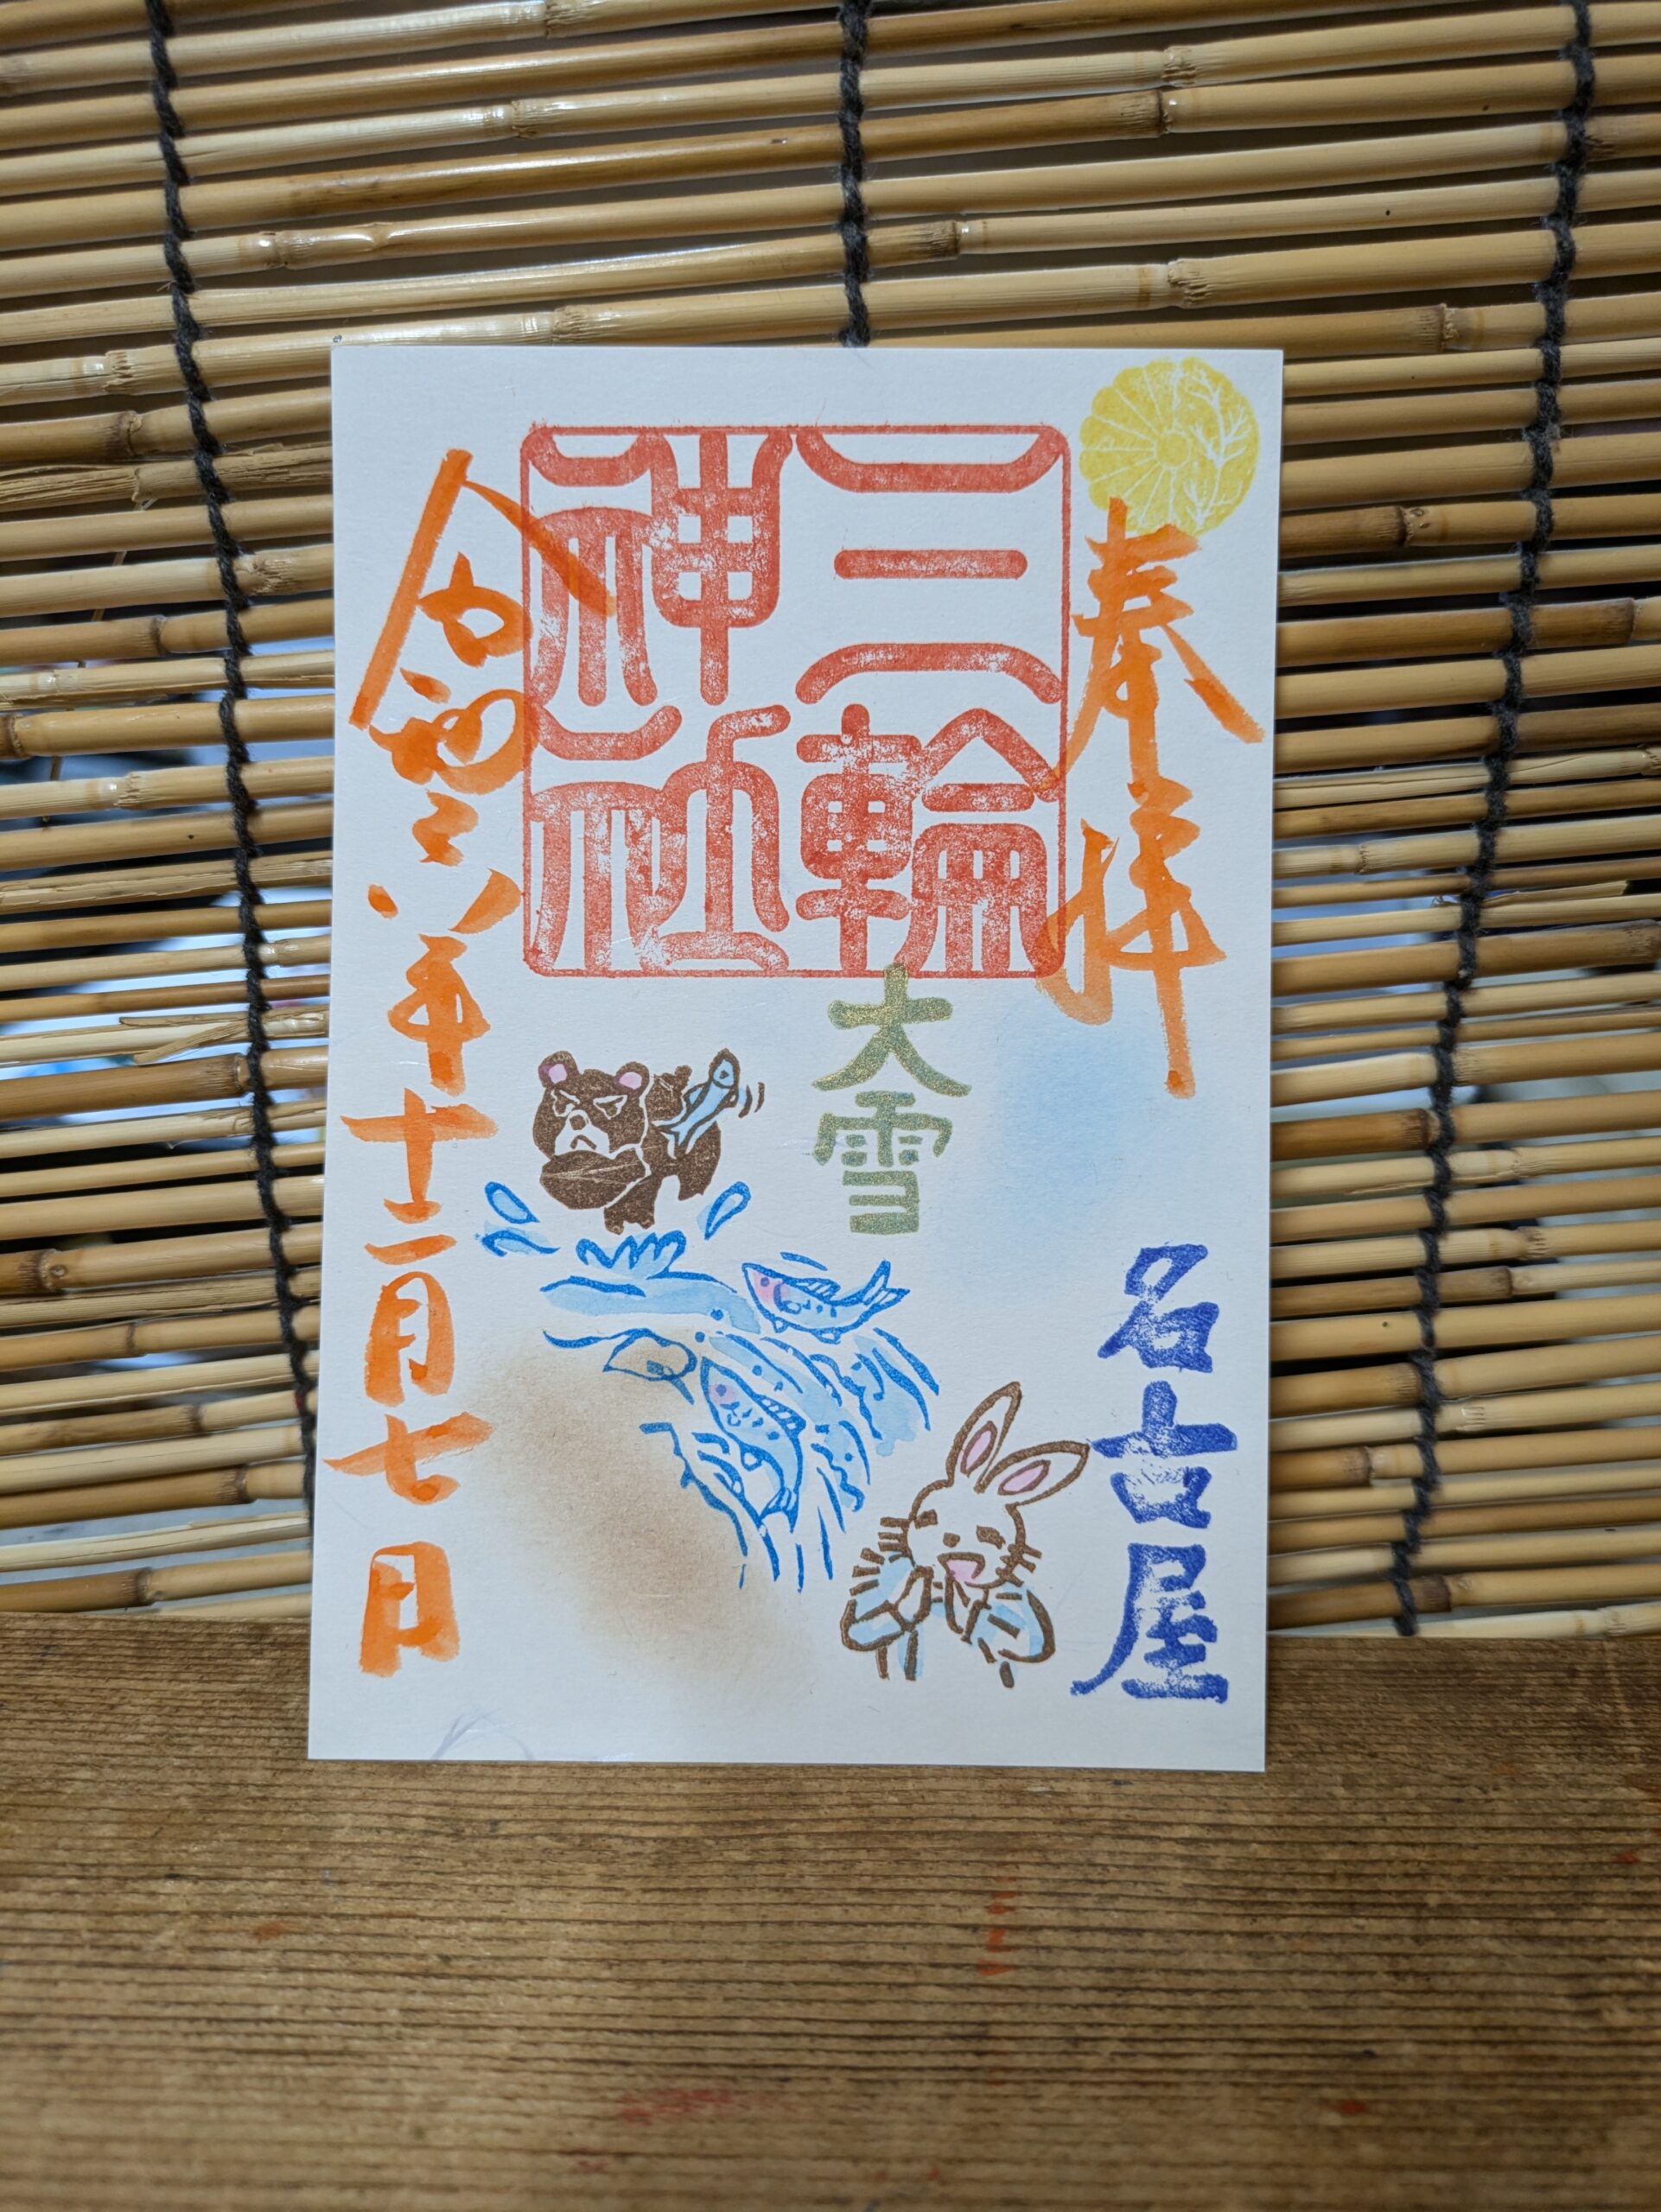 奉拝
名古屋
三輪
神社
大雪
令和六年十二月七日